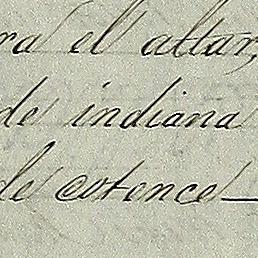 ra el altar,
de indiana
de cotence—